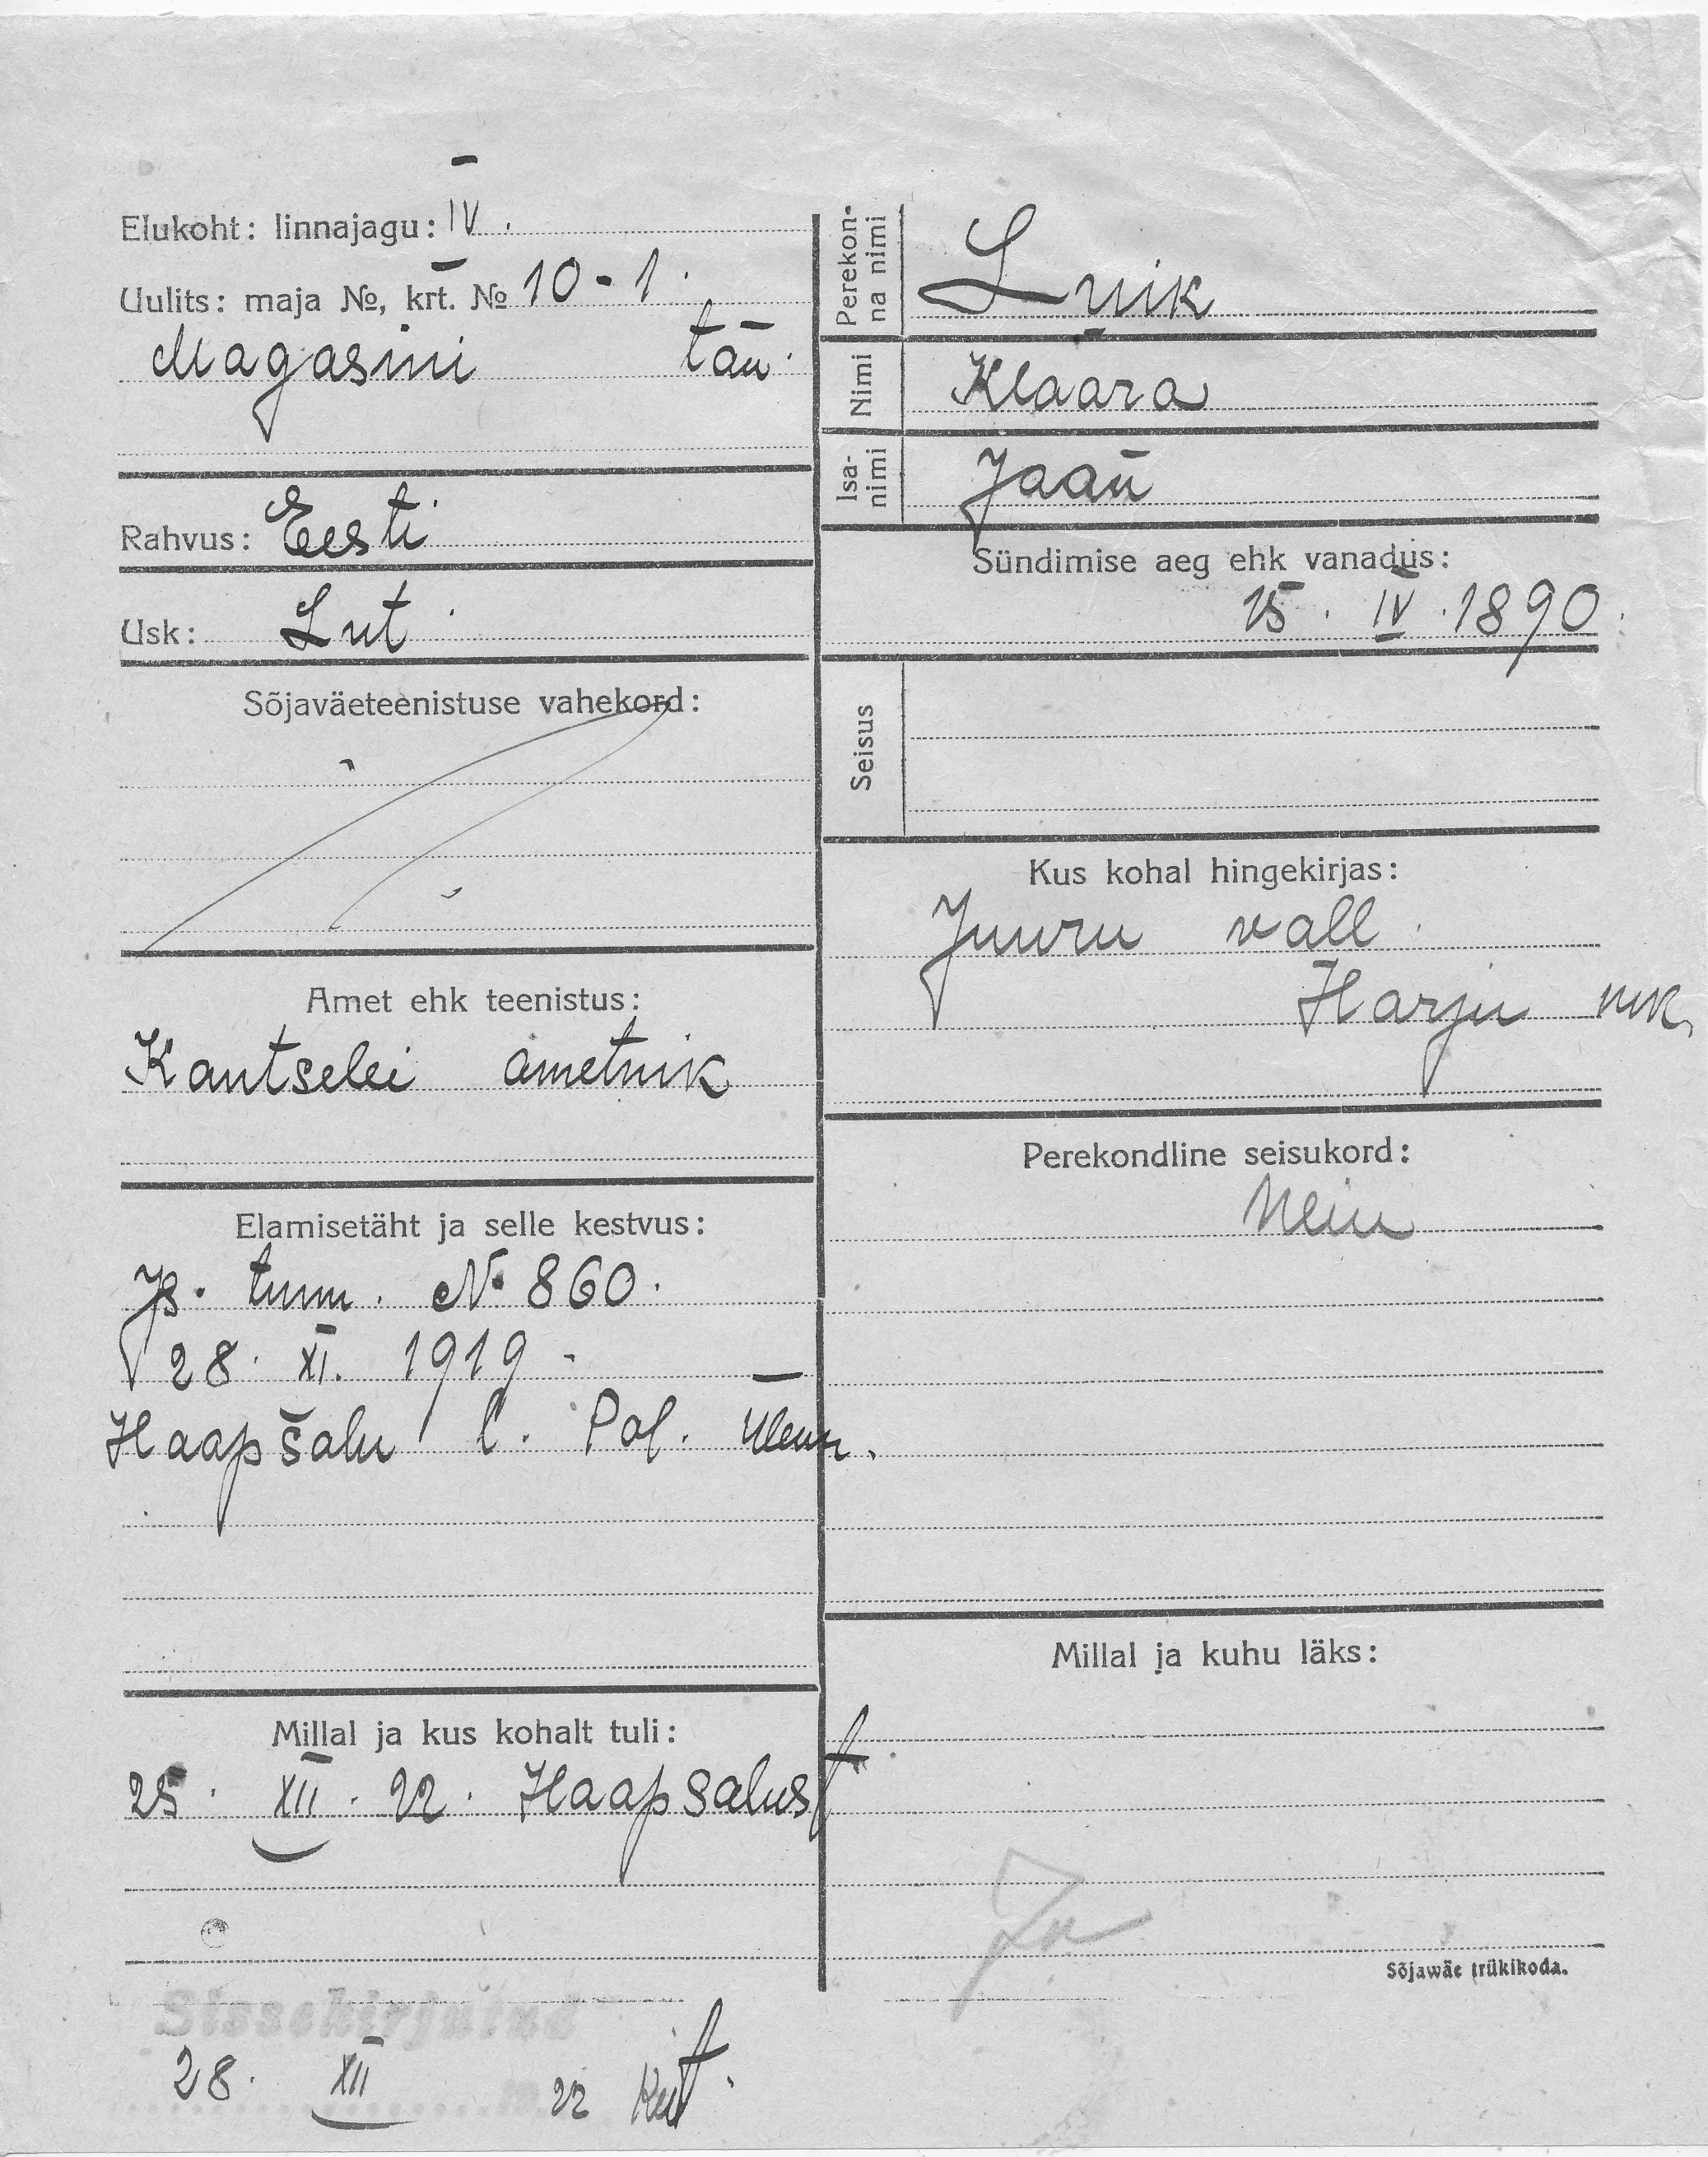 Elukoht: linnajagu: IV.
Uulits: maja №, krt. № 10-1.
Magasini tän.
Rahvus: Eesti
Usk: Lut.
Sõjaväeteenistuse vahekord:
Amet ehk teenistus:
Kantselei ametnik
Elamisetäht ja selle kestvus:
Is. tunn. № 860.
28. XI. 1919.
Haapsalu l. Pol. Ülem.
Millal ja kus kohalt tuli:
25. XII. 22. Haapsalust
Sissekirjutud
28. XII 22
Perekonna nimi
Luik
Nimi
Klaara
Isanimi
Jaan
Sündimise aeg ehk vanadus:
15. IV. 1890.
Seisus
Kus kohal hingekirjas:
Juuru vall.
Harju mk.
Perekondline seisukord:
Neiu
Millal ja kuhu läks:
Sõjawäe trükikoda.